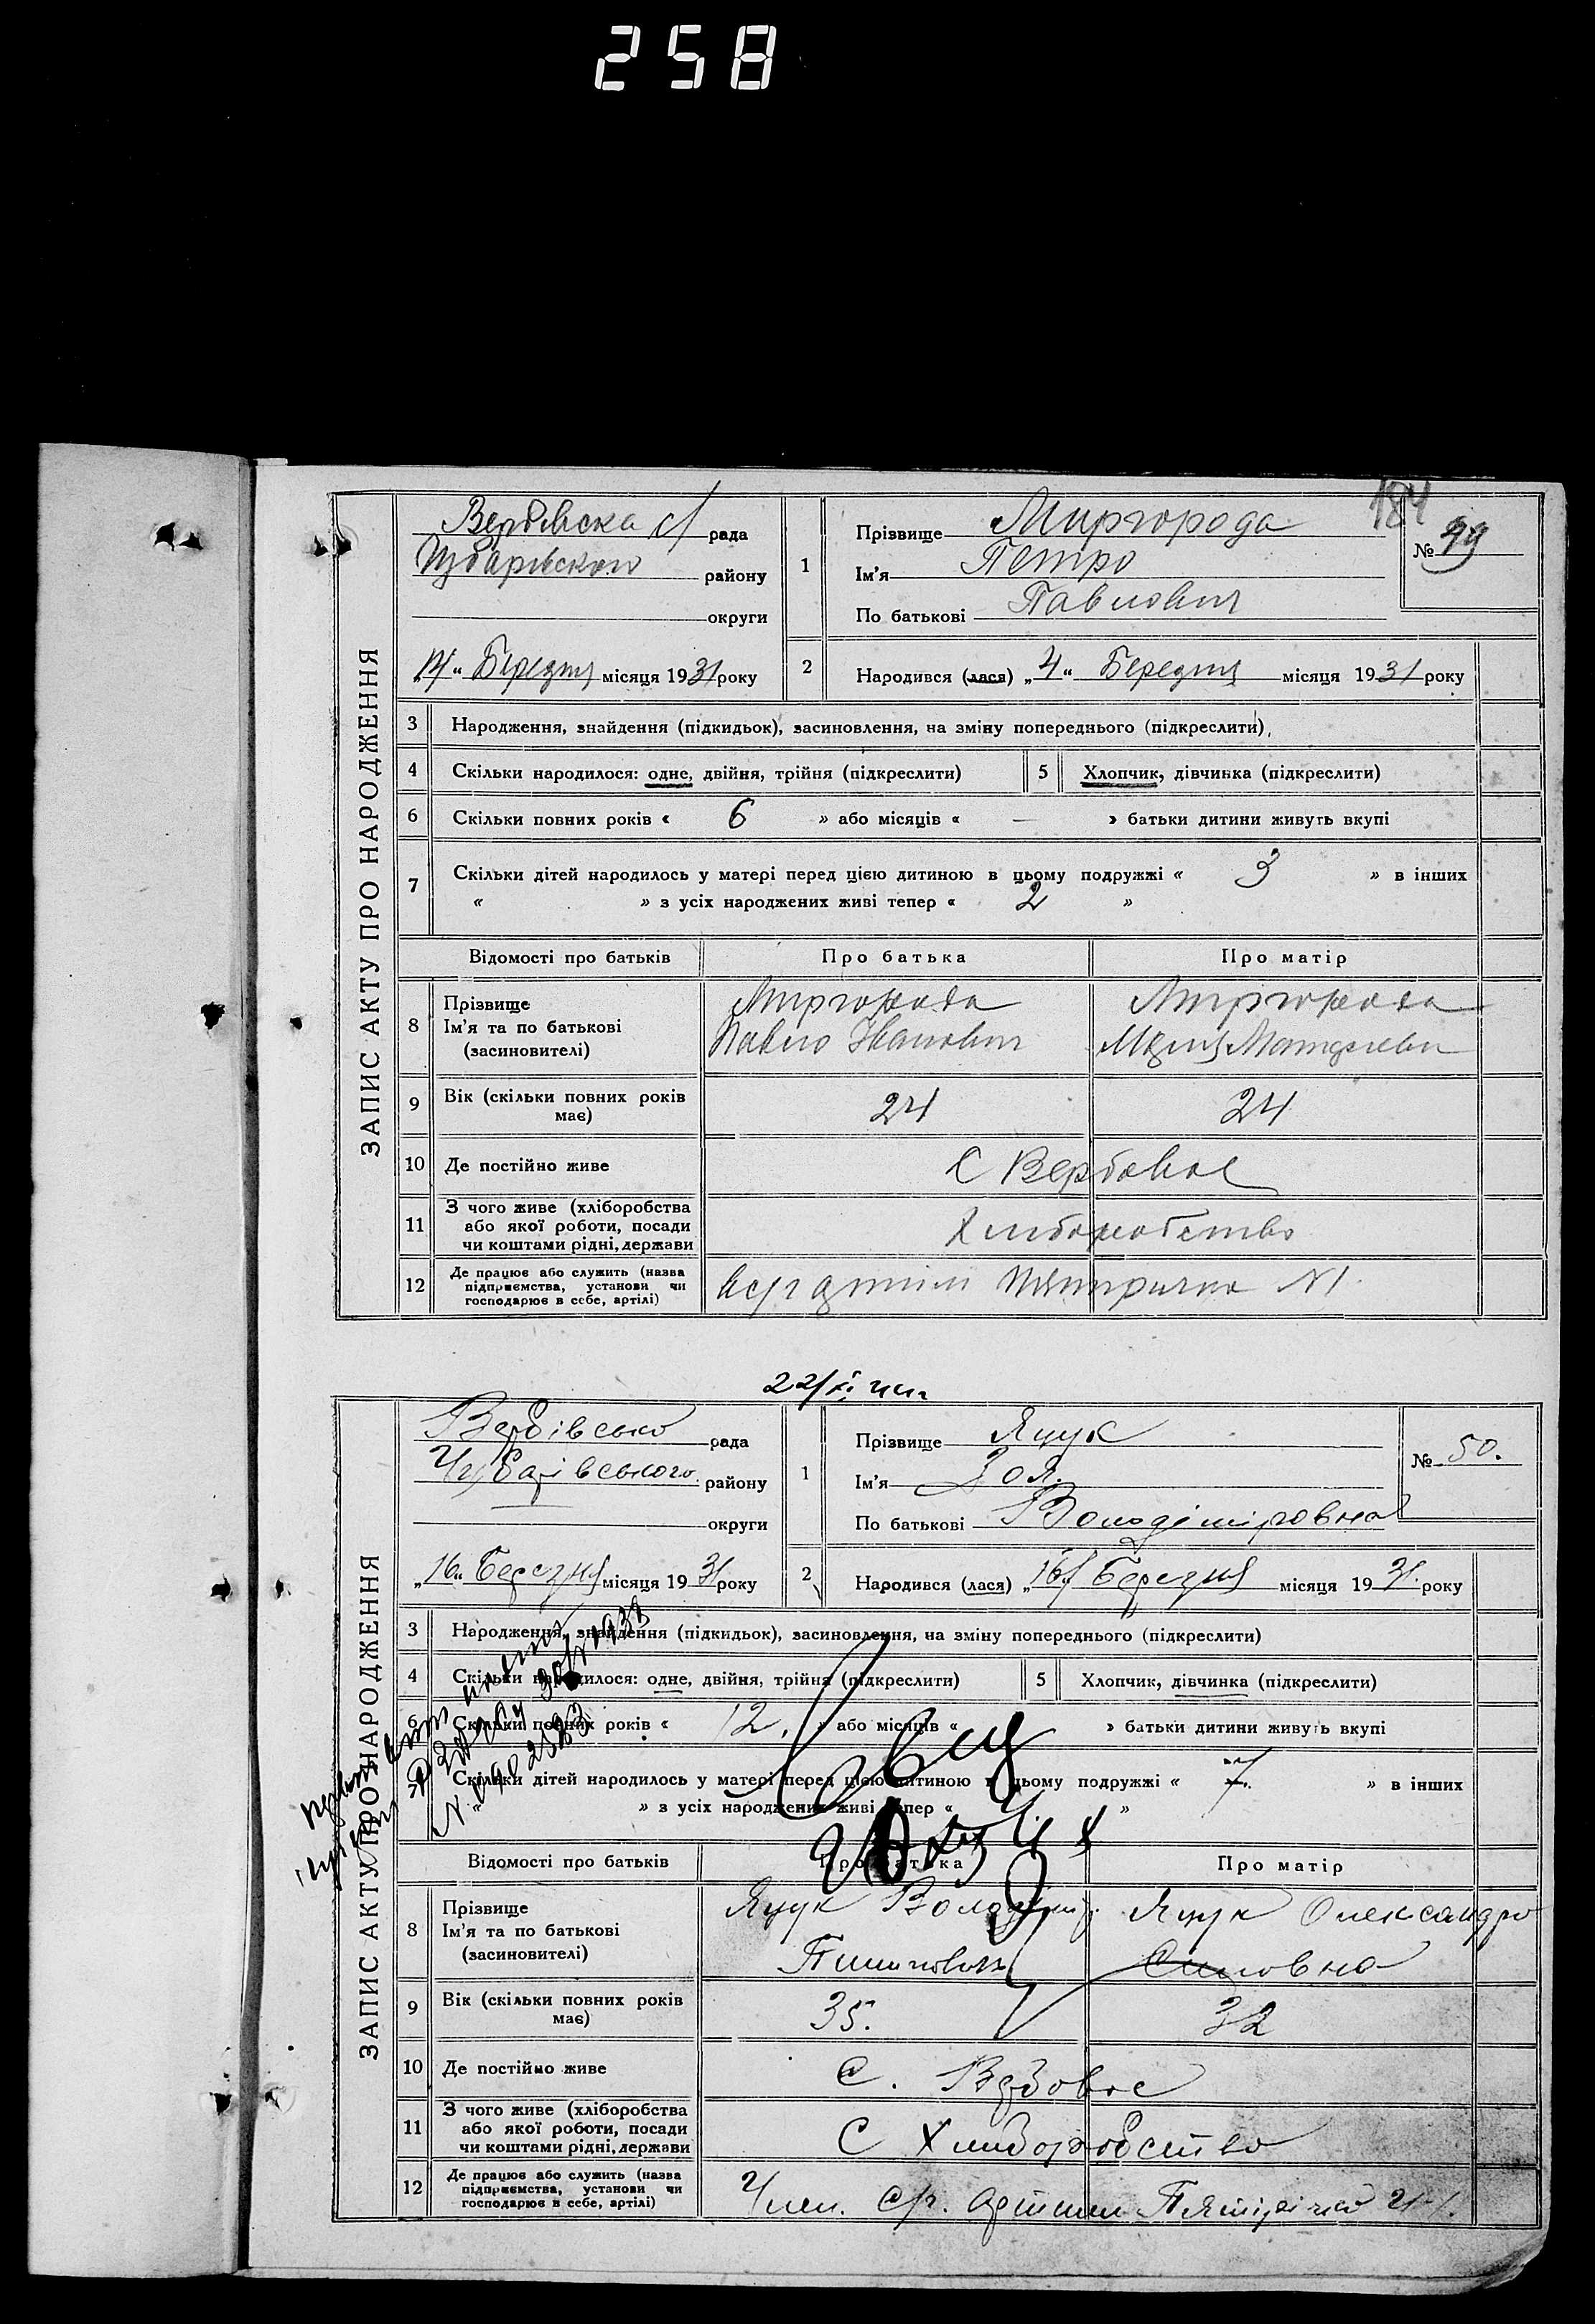 258
184
Вербівска с/ рада
Чубарівского району
округи
„14“ Березня місяця 1931 року
1
Прізвище Миргорода
Ім'я Петро
По батькові Павлович
№ 49
2 Народився (лася) „4“ Березня місяця 1931 року
ЗАПИС АКТУ ПРО НАРОДЖЕННЯ
3 Народження, знайдення (підкидьок), засиновлення, на зміну попереднього (підкреслити)
4 Скільки народилося: одне, двійня, трійня (підкреслити) 5 Хлопчик, дівчинка (підкреслити)
6 Скільки повних років « 6 » або місяців « — » батьки дитини живуть вкупі
7 Скільки дітей народилось у матері перед цією дитиною в цьому подружжі « 3 » в інших
« » з усіх народжених живі тепер « 2 »
Відомості про батьків Про батька Про матір
8 Прізвище Миргорода Миргорода
Ім'я та по батькові Павло Іванович Марія
(засиновителі)
9 Вік (скільки повних років має) 24 24
10 Де постійно живе С Вербовое
11 З чого живе (хліборобства
або якої роботи, посади
чи коштами рідні, держави Хліборобство
12 Де працює або служить (назва
підприємства, установи чи
господарює в себе, артілі) артіли Пятирична N1
22/
Вербівсько рада
Чубарівського району
округи
„16“ Березня місяця 1931 року
1
Прізвище Яцук
Ім'я Зоя.
По батькові Володіміровна
№ 50.
2 Народився (лася) „16“ Березня місяця 1931. року
ЗАПИС АКТУ ПРО НАРОДЖЕННЯ
3 Народження, знайдення (підкидьок), засиновлення, на зміну попереднього (підкреслити)
4 Скільки народилося: одне, двійня, трійня (підкреслити) 5 Хлопчик, дівчинка (підкреслити)
6 Скільки повних років « 12, » або місяців « » батьки дитини живуть вкупі
7 Скільки дітей народилось у матері перед цією дитиною в цьому подружжі « 7. » в інших
« » з усіх народжених живі тепер « »
Відомості про батьків Про батька Про матір
8 Прізвище Яцук Володімір Яцук Олександра
Ім'я та по батькові
(засиновителі)
9 Вік (скільки повних років має) 35. 32
10 Де постійно живе С. Вербовое
11 З чого живе (хліборобства
або якої роботи, посади
чи коштами рідні, держави С Хлиборобство
12 Де працює або служить (назва
підприємства, установи чи
господарює в себе, артілі) Член. с/г. Артили Пятірічка